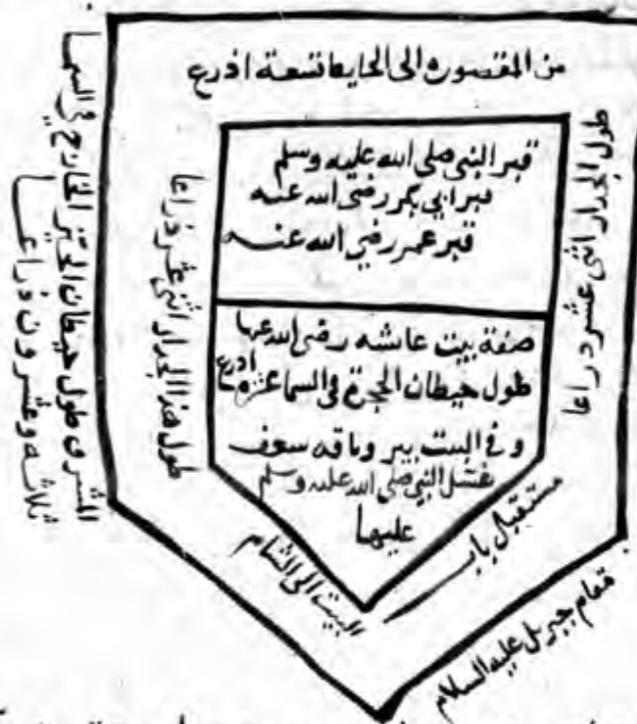 من المقصوره الى الحايط تسعة اذرع
قبر النبي صلى الله عليه وسلم
قبر ابي بكر رضي الله عنه
قبر عمر رضي الله عنه
صفة بيت عائشه رضى الله عنها
طول حيطان الحجرة فى السما عشرة اذرع
و فى البيت بير و ناقه سعف
غسل النبي صلى الله عليه وسلم
عليها
طول الجدار اثنى عشر ذراعا
طول هذا الجدار اثنى عشر ذراعا
المشرق طول حيطان الحيز الخارج في السما
ثلاثه وعشرون ذراعا
مستقبل باب
البيت الى الشام
مقام جبريل عليه السلام